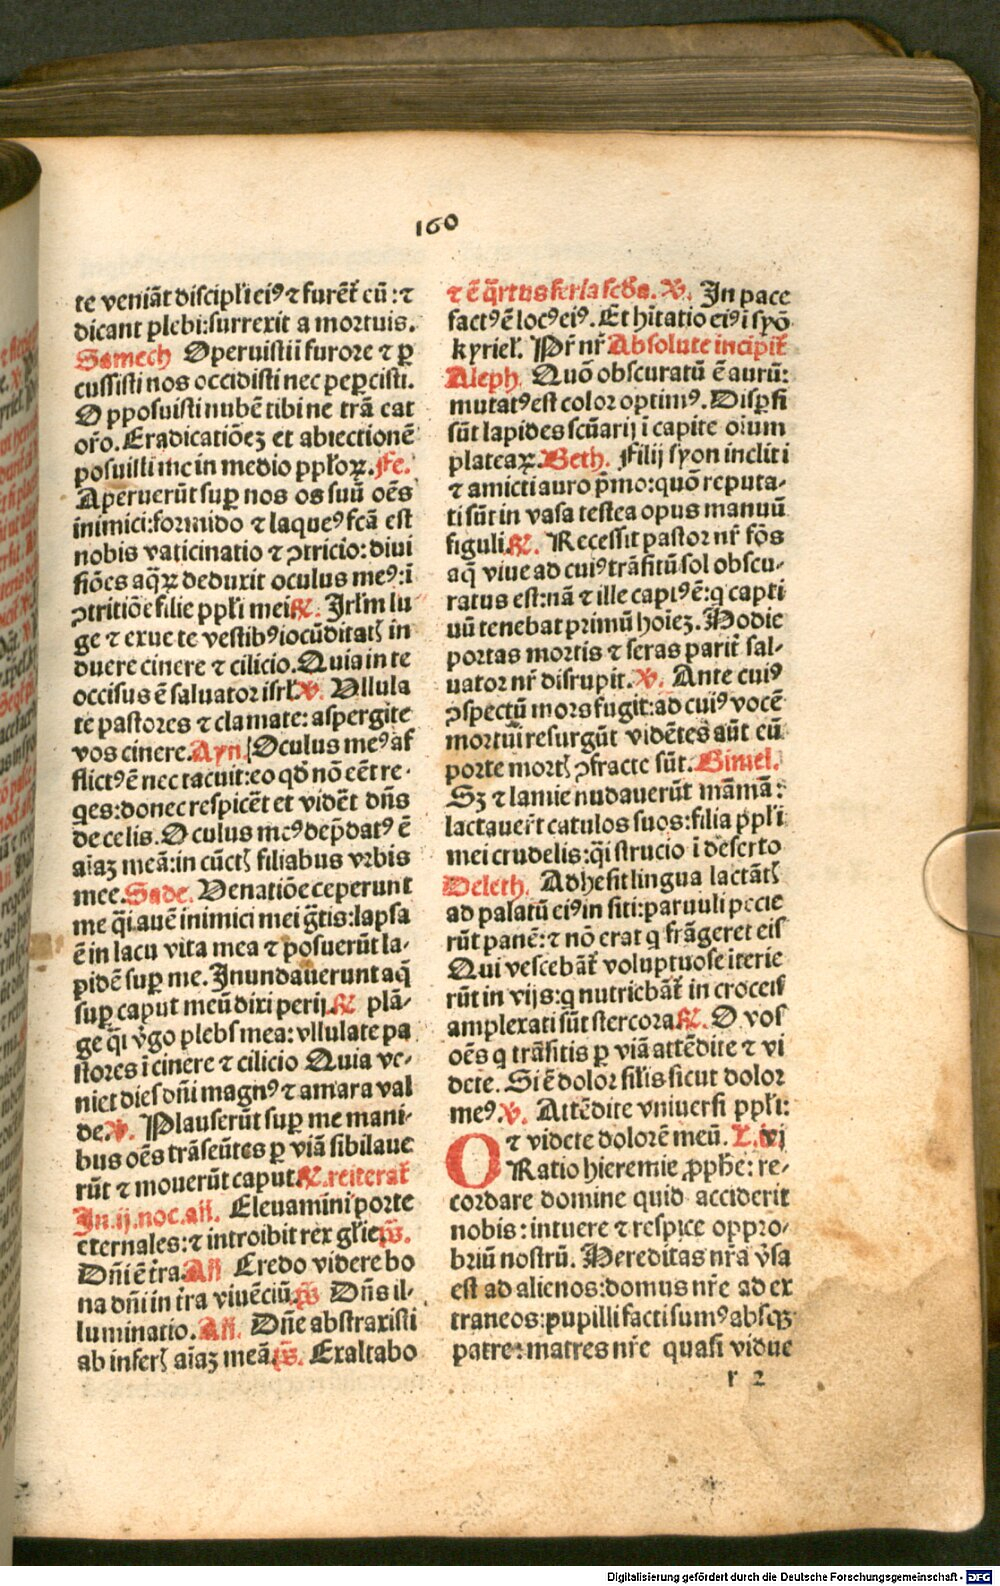 160
te veniāt discipl̄i eiꝰ ⁊ furēt̄ eū: ⁊
dicant plebi: surrexit a mortuis.
Samech Operuisti i furore ⁊ ꝑ
cussisti nos occidisti nec peꝑcisti.
Opposuisti nubē tibi ne trā cat
or̄o. Eradicatiōeꝫ et abiectionē
posuisti me in medio ppl̄oꝝ. Fe.
Aperuerūt suꝑ nos os suū oēs
inimici: formido ⁊ laqueꝰ fcā est
nobis vaticinatio ⁊ ꝯtricio: diui
siōes aq̄ꝝ deduxit oculus meꝰ: ī
ꝯtritiōe filie ppl̄i mei ℟. Jrl̄m lu
ge ⁊ exue te vestibꝰ iocūditatꝭ in
duere cinere ⁊ cilicio. Quia in te
occisus ē saluator isrl̄ ℣. Ullula
te pastores ⁊ clamate: aspergite
vos cinere. Ayn. Oculus meꝰ af
flictꝰ ē nec tacuit: eo qd̄ nō eēt re-
ges: donec respicēt et vidēt dn̄s
de celis. Oculus meꝰ dep̄datꝰ ē
aīaꝫ meā: in cūctꝭ filiabus vrbis
mee. Sade. Uenatiōe ceperunt
me q̄i auē inimici mei ḡtis: lapsa
ē in lacu vita mea ⁊ posuerūt la-
pidē suꝑ me. Jnundauerunt aq̄
suꝑ caput meū dixi perij. ℟ plā-
ge q̄i v̄go plebs mea: vllulate pa
stores ī cinere ⁊ cilicio Quia ve-
niet dies dn̄i magnꝰ ⁊ amara val
de. ℣. Plauserūt suꝑ me mani-
bus oēs trāseūtes ꝑ viā sibilaue
rūt ⁊ mouerūt caput. ℟. reiterat̄
Jn .ij. noc. añ. Eleuamīni porte
eternales: ⁊ introibit rex gl̄ie ps̄.
Dn̄i ē tr̄a. Añ Credo videre bo
na dn̄i in tr̄a viuēciū. ps̄ Dn̄s il-
luminatio. Añ. Dn̄e abstraxisti
ab inferꝭ aīaꝫ meā. ps̄. Exaltabo
⁊ ē q̄rtus feria scd̄a. ℣. Jn pace
factꝰ ē locꝰ eiꝰ. Et hītatio eiꝰ ī syō
kyriel̄. Pr̄ nr̄ Absolute incipit̄
Aleph. Quō obscuratū ē aurū:
mutatꝰ est color optimꝰ. Disꝑsi
sūt lapides scūarij ī capite oīum
plateaꝝ. Beth. Filij syon incliti
⁊ amicti auro p̄mo: quō reputa-
ti sūt in vasa testea opus manuū
figuli ℟. Recessit pastor nr̄ fōs
aq̄ viue ad cuiꝰ trāsitū sol obscu-
ratus est: nā ⁊ ille capꝰ ē: q capti
uū tenebat primū hoīeꝫ. Hodie
portas mortis ⁊ seras parit̄ sal-
uator nr̄ disrupit. ℣. Ante cuiꝰ
ꝯspectū mors fugit: ad cuiꝰ vocē
mortui resurgūt vidētes aūt eū
porte mortꝭ ꝯfracte sūt. Gimel.
Sꝫ ⁊ lamie nudauerūt māmā:
lactauer̄t catulos suos: filia ppl̄i
mei crudelis: q̄i strucio ī deserto
Deleth. Adhesit lingua lactātꝭ
ad palatū eiꝰ in siti: paruuli pecie
rūt panē: ⁊ nō erat q frāgeret eis
Qui vescebāt̄ voluptuose īterie
rūt in vijs: q nutriebāt̄ in croceis
amplexati sūt stercora ℟. O vos
oēs q trāsitis ꝑ viā attēdite ⁊ vi
dete. Si ē dolor sil̄is sicut dolor
meꝰ ℣. Attēdite vniuersi ppl̄i:
⁊ videte dolorē meū. L. iij
ORatio hieremie ꝓph̄e: re-
cordare domine quid acciderit
nobis: intuere ⁊ respice oppro-
briū nostrū. Hereditas nr̄a v̄sa
est ad alienos: domus nr̄e ad ex
traneos: pupilli facti sumꝰ absqꝫ
patre: matres nr̄e quasi vidue
r 2
Digitalisierung gefördert durch die Deutsche Forschungsgemeinschaft - DFG